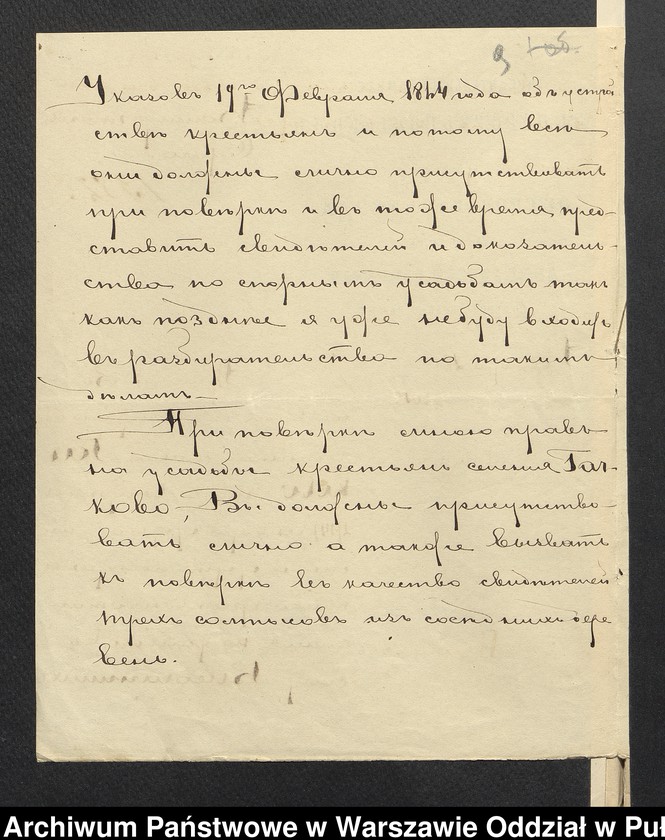 9 108.
Указовъ 19го Февраля 1864 года объ устрой
ствѣ крестьянъ и потому всѣ
они должны лично присутствовать
при повѣркѣ и въ тоже время пред-
ставить свидѣтелей и доказатель-
ства по спорнымъ усадьбамъ такъ
какъ позднѣе я уже небуду входить
въ разбирательство по такимъ
дѣламъ.
При повѣркѣ мною правъ
на усадьбы крестьянъ селенія Гач-
ково, Вы должны присутство-
вать лично а также вызвать
къ повѣркѣ въ качество свидѣтелей
трехъ солтысовъ изъ сосѣднихъ дере
вень.
Archiwum Państwowe w Warszawie Oddział w Pu